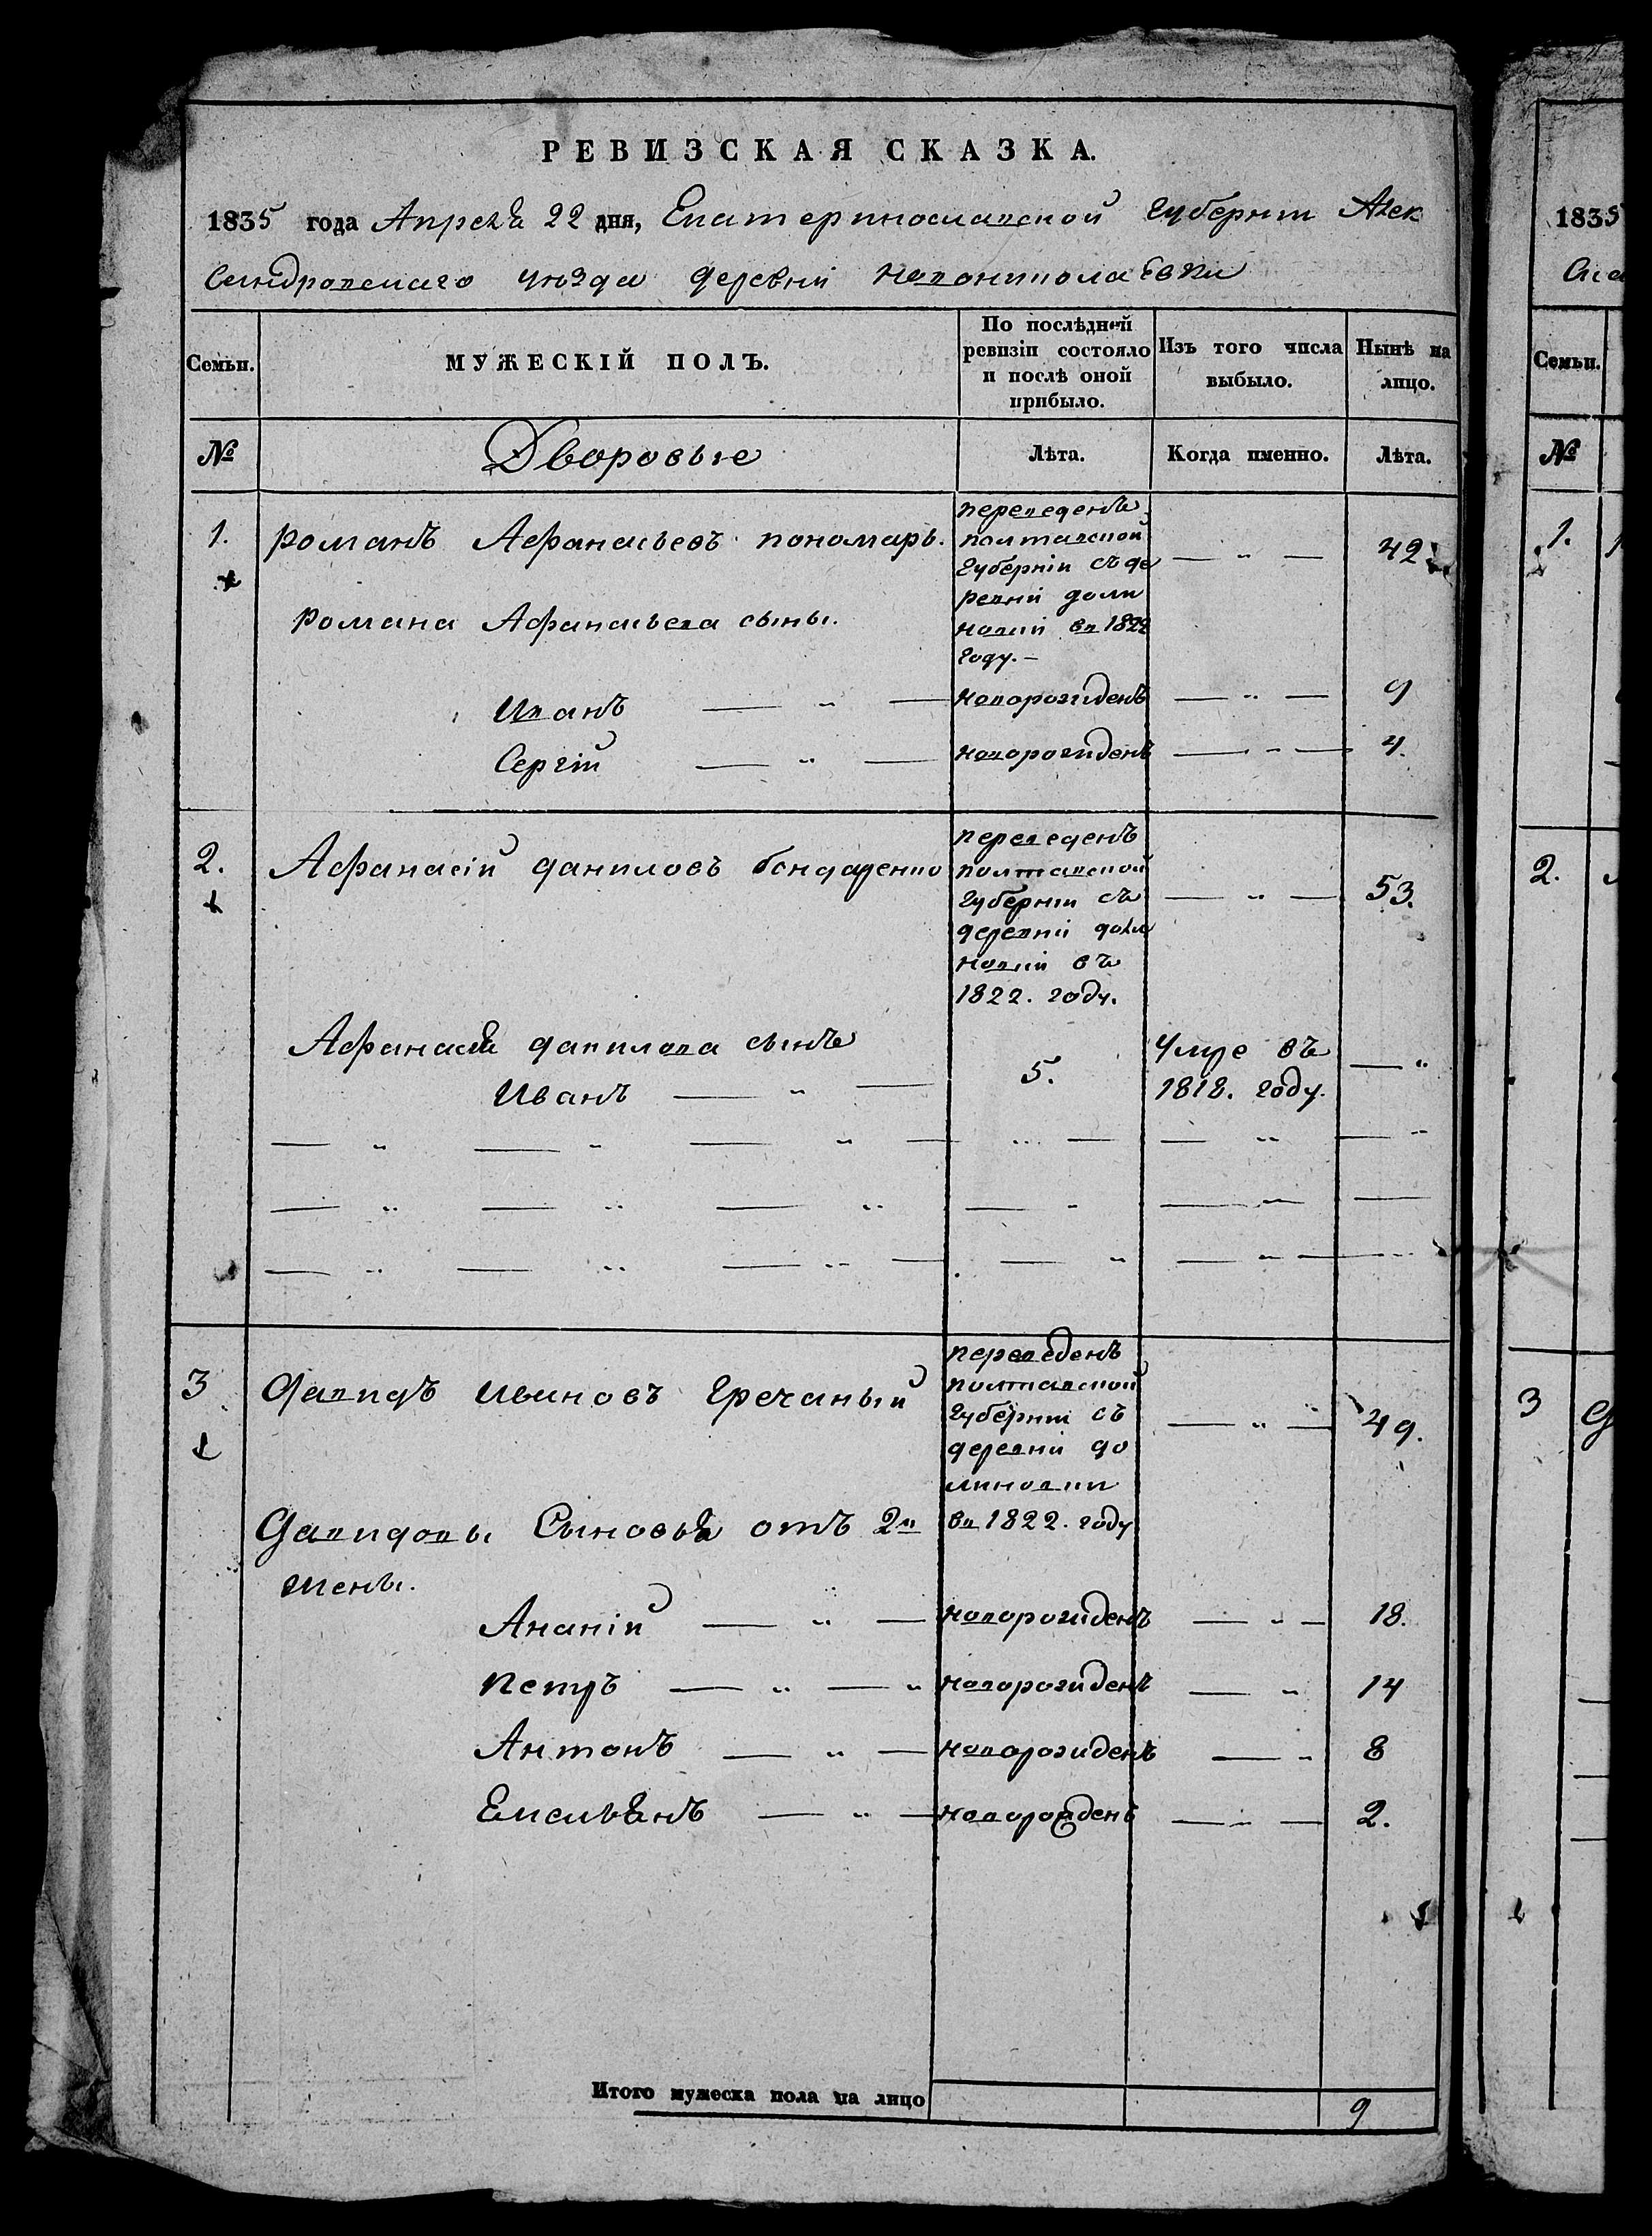 РЕВИЗСКАЯ СКАЗКА.
1835 года Апреля 22 дня, Екатеринославской губернии Алек
сандровскаго уезда деревни Новониколаевки
Семьи. МУЖЕСКІЙ ПОЛЪ. По послѣдней ревизіи состояло и послѣ оной прибыло. Изъ того числа выбыло. Нынѣ на лицо.
№ Дворовые Лѣта. Когда именно. Лѣта.
1. Романъ Афанасьевъ пономарь. — " — 42.
переведенъ
полтавской
губерніи съ де
ревни доли
новки въ 1822
году. —
Романа Афанасьева сыны.
Иванъ — " — новорожденъ — " — 9
Сергій — " — новорожденъ — " — 4.
2. Афанасій даниловъ бондаренко — " — 53.
переведенъ
полтавской
губерніи съ
деревни доли
новки въ
1822. году.
Афанасія данилова сынъ
Иванъ — " — 5. Умре въ — "
1818. году.
3 давидъ ивановъ гречаный — " — 49.
переведенъ
полтавской
губерніи съ
деревни до
линовки
въ 1822. году
Давидовы Сыновья отъ 2й
жены.
Ананій — " — новорожденъ — " — 18.
петръ — " — " новорожденъ — " 14
Антонъ — " — новорожденъ — " 8
Емельянъ — " — новорожденъ — " — 2.
Итого мужеска пола на лицо 9
1835
Семьи.
№
1.
2.
3